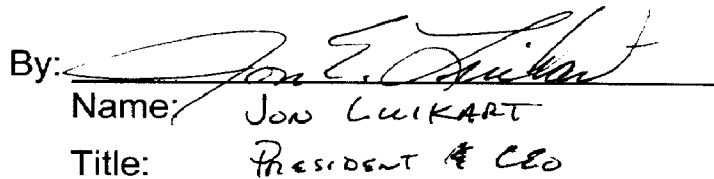 By: Jon E. Luikart
Name: JON LUIKART
Title: PRESIDENT & CEO